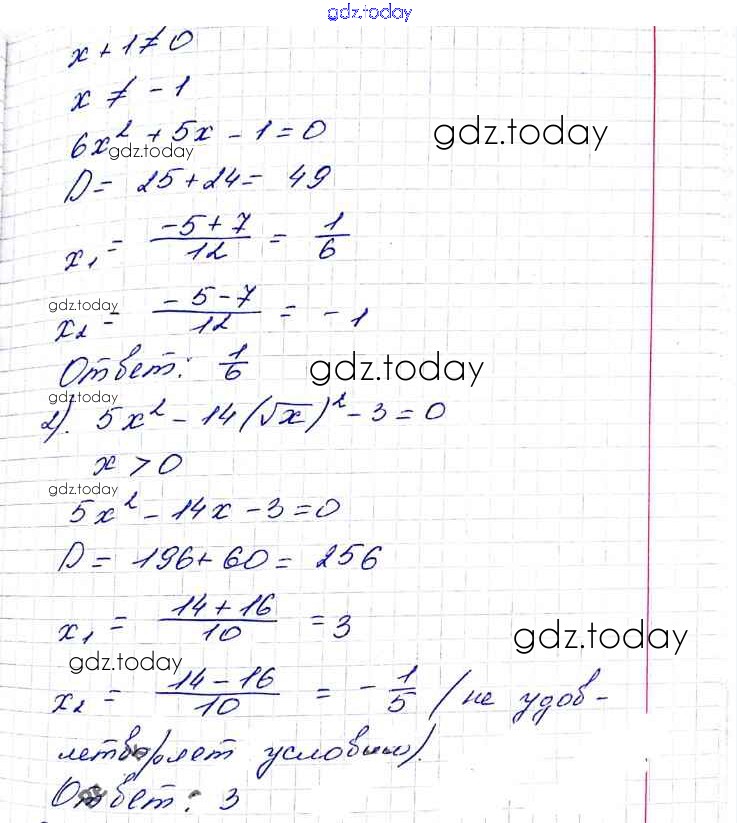 gdz.today
x + 1 ≠ 0
x ≠ - 1
6x² + 5x - 1 = 0
gdz.today
gdz.today
D = 25 + 24 = 49
x₁ = (-5 + 7)/12 = 1/6
gdz.today
x₂ = (-5 - 7)/12 = -1
Ответ: 1/6
gdz.today
gdz.today
2). 5x² - 14(√x)² - 3 = 0
x > 0
gdz.today
5x² - 14x - 3 = 0
D = 196 + 60 = 256
x₁ = (14 + 16)/10 = 3
gdz.today
gdz.today
x₂ = (14 - 16)/10 = - 1/5 (не удов-
летворяет условию).
Ответ: 3